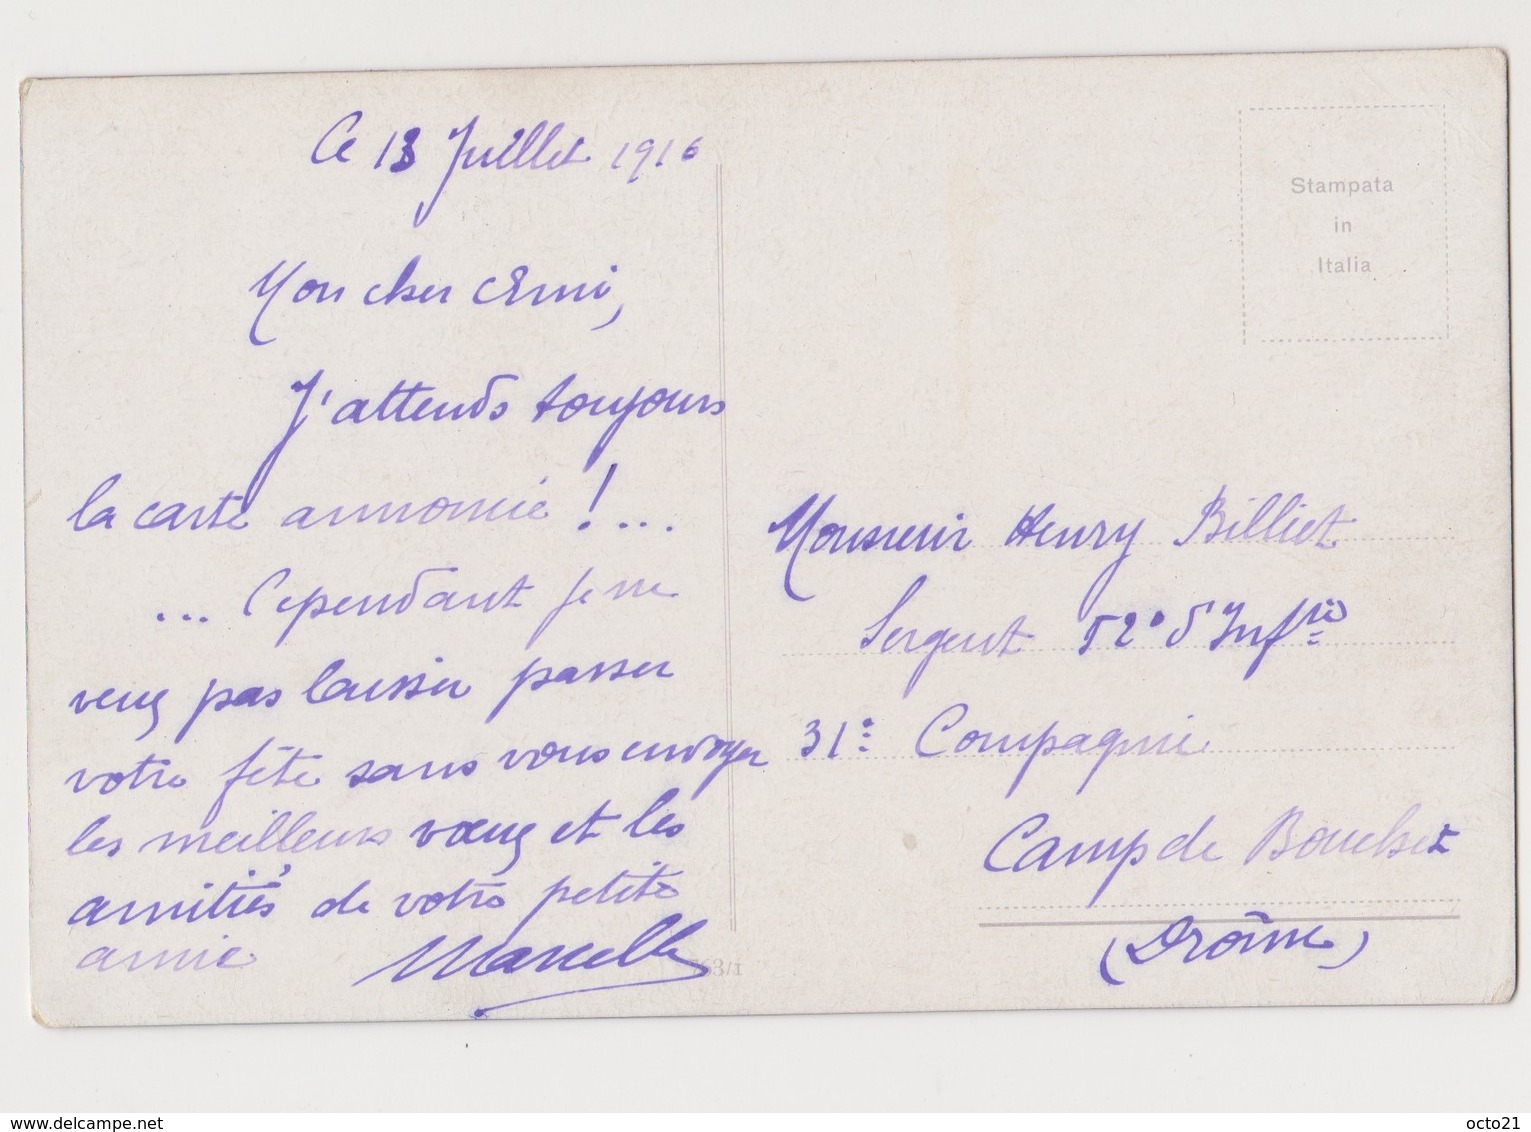 Ce 13 Juillet 1916
Mon cher Emi,
J'attends toujours
la carte annoncée !...
... Cependant je ne
veux pas laisser passer
votre fête sans vous envoyer
les meilleurs vœux et les
amitiés de votre petite
amie Marcelle
763/1
Stampata
in
Italia
Monsieur Henry Billiet
Sergent 52e d'Infrie
31e Compagnie
Camp de Bouchet
(Drôme)
www.delcampe.net
octo21